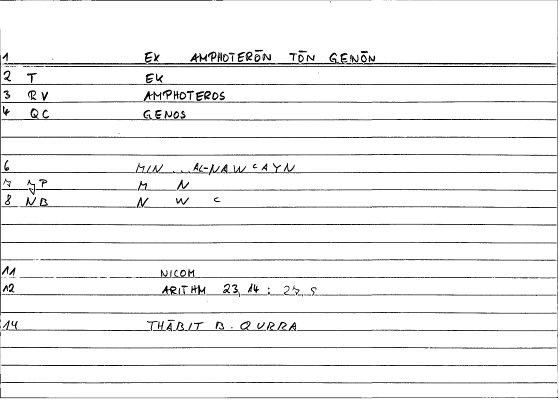 1 EK AMPHOTERŌN TŌN GENŌN
2 T EK
3 RV AMPHOTEROS
4 QC GENOS
6 MIN ... AL-NAWCAYN
M N
8 NB N W C
11 NICOM
12 ARITHM 23, 14 :
14 THĀBIT B. QURRA